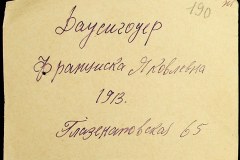 190
Баусигодер
Франциска Яковлевна
1913.
Глазенаповская 65